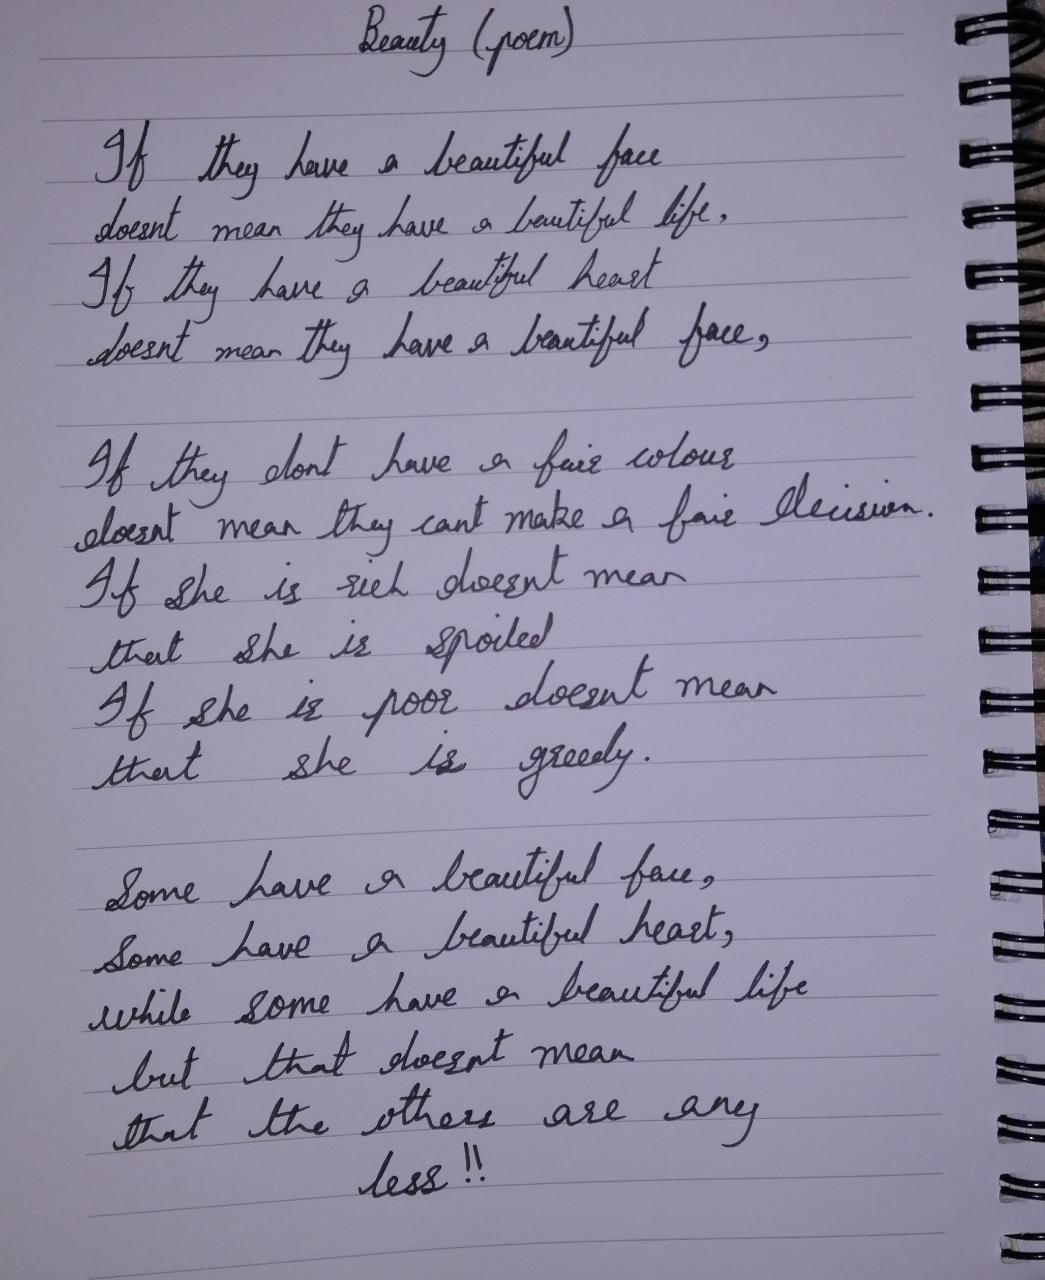 Beauty (poem)
If they have a beautiful face
doesnt mean they have a beautiful life,
If they have a beautiful heart
doesnt mean they have a beautiful face,
If they dont have a fair colour
doesnt mean they cant make a fair decision.
If she is rich doesnt mean
that she is spoiled
If she is poor doesnt mean
that she is greedy.
Some have a beautiful face,
Some have a beautiful heart,
while some have a beautiful life
but that doesnt mean
that the others are any
less!!